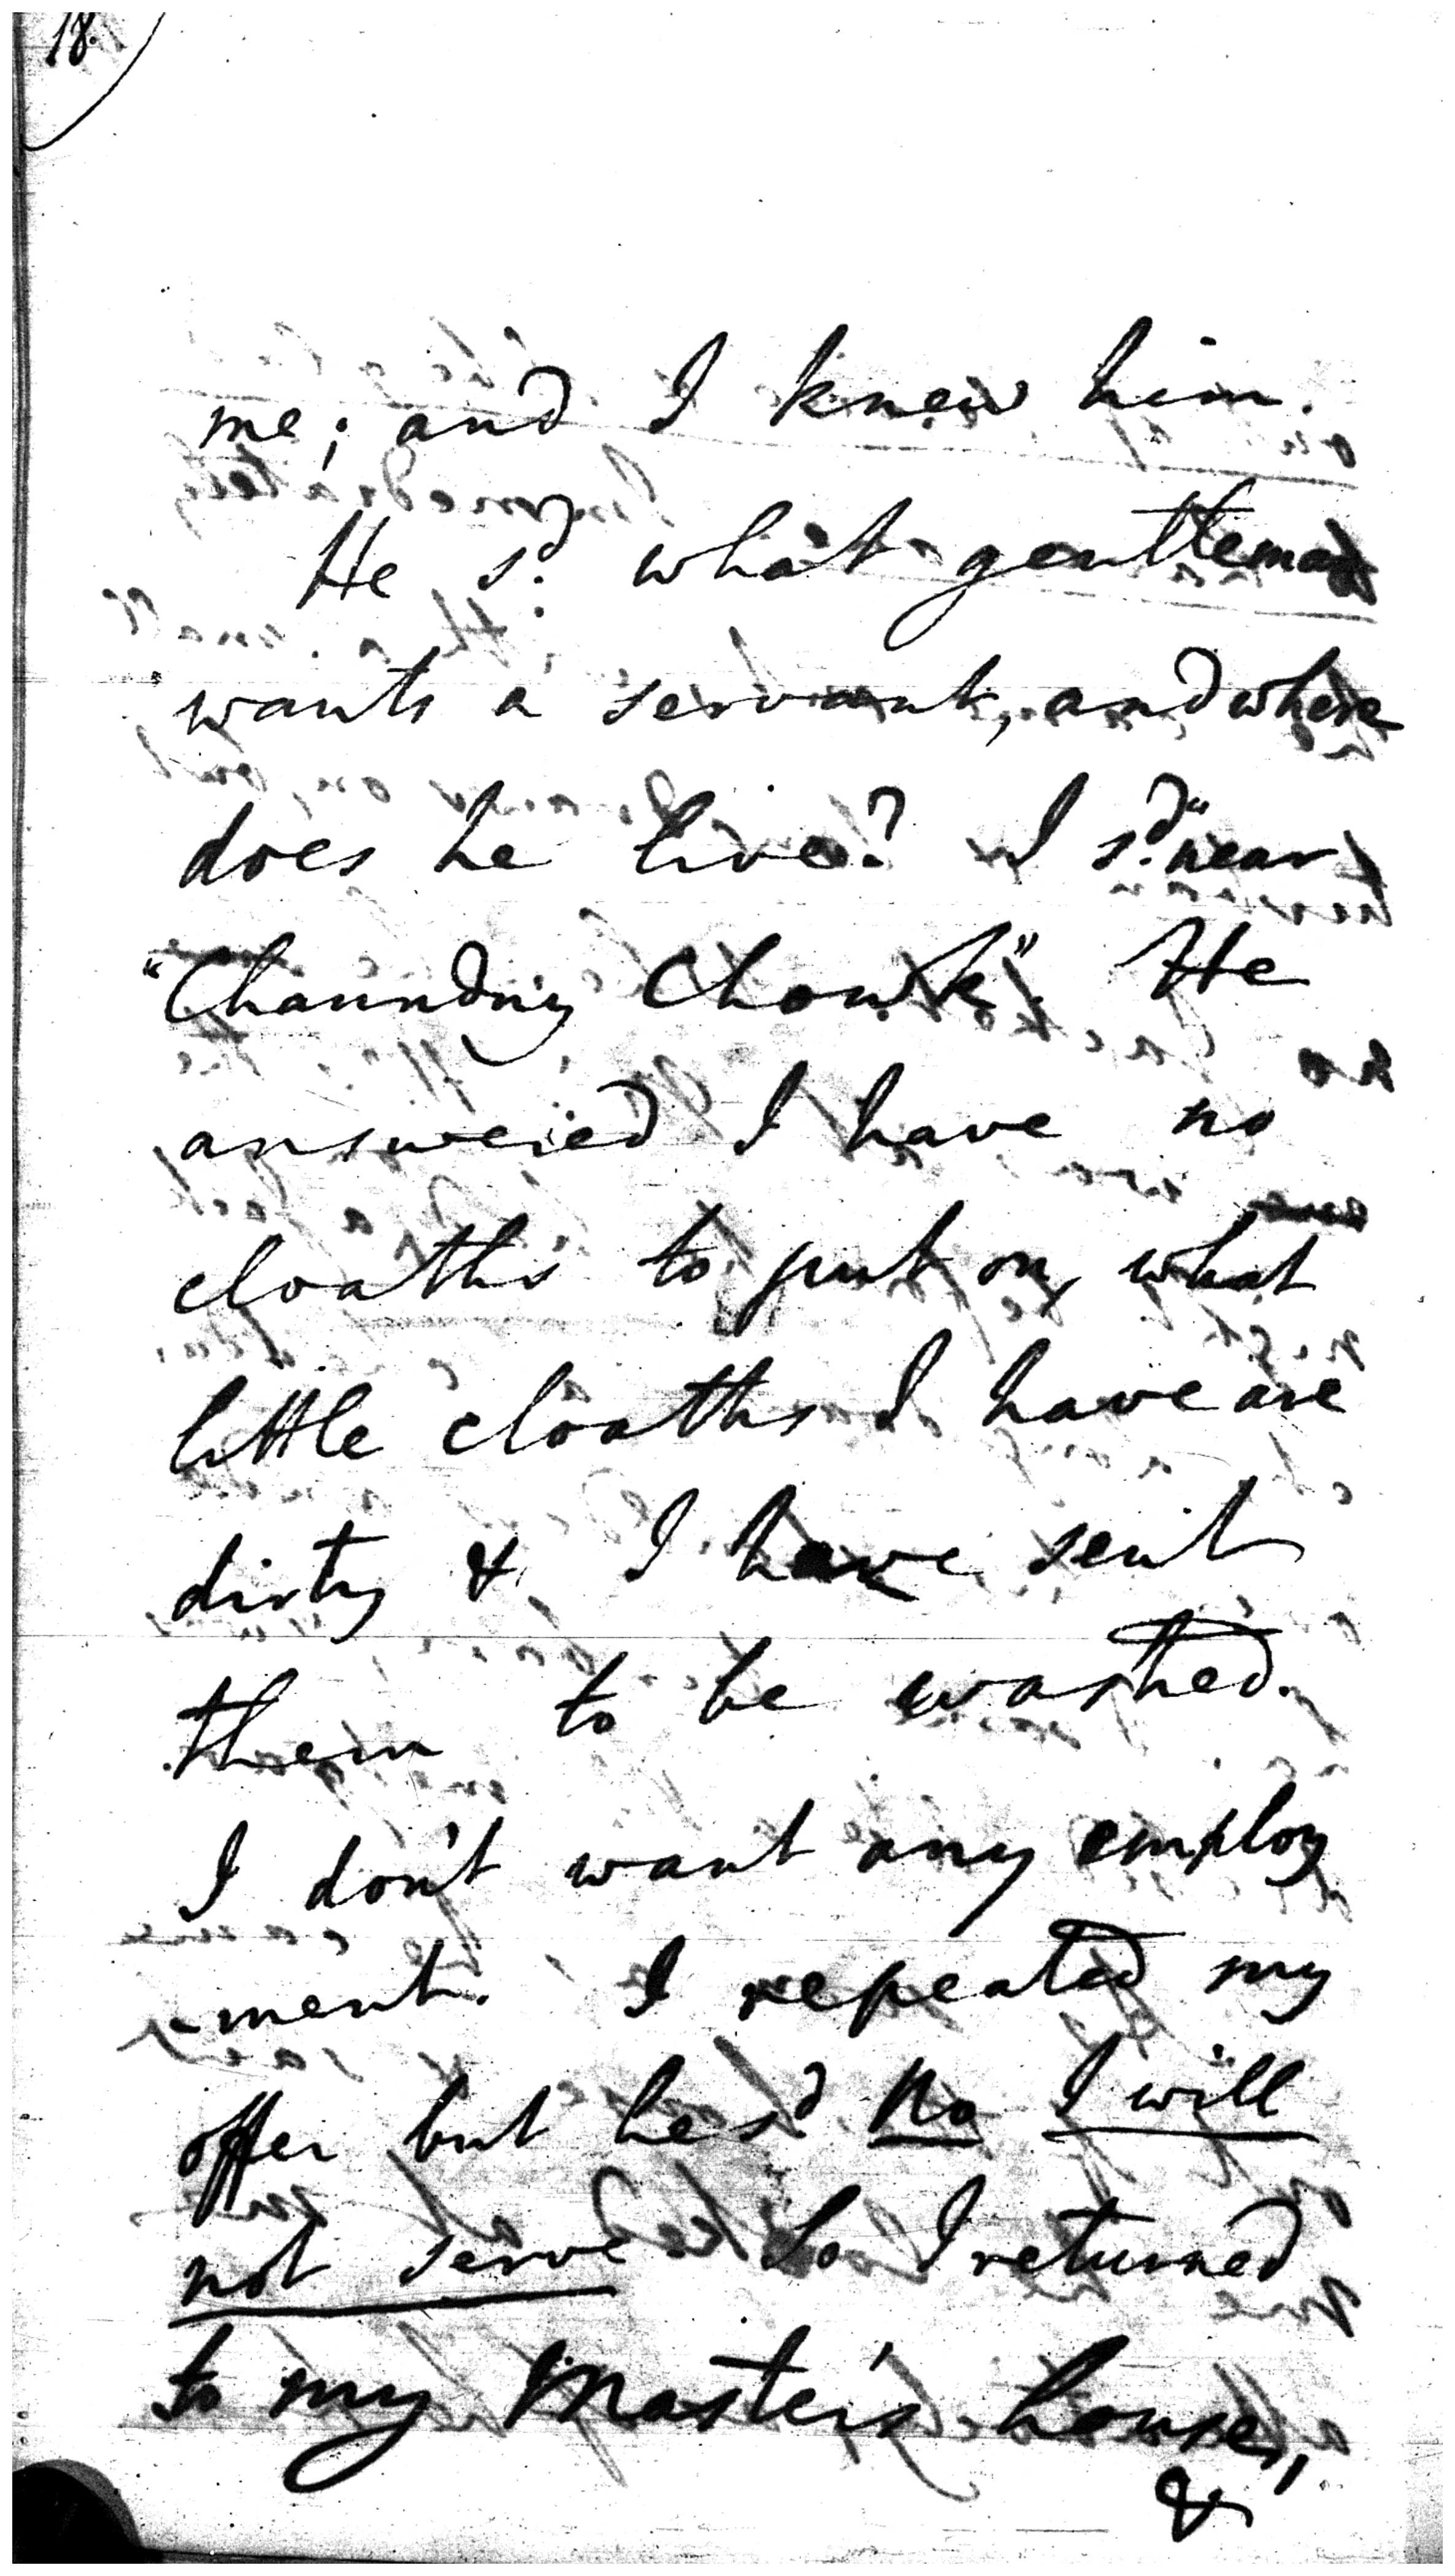 18.
me; and I knew him.
He sd. what gentleman
wants a servant, and where
does he live? I sd. "near
"Chaundny Chowk". He
answered I have no
cloaths to put on, what
little cloaths I have are
dirty & I have sent
them to be washed.
I don't want any employ
-ment. I repeated my
offer but he sd. no I will
not serve. So I returned
to my Master's house,
&